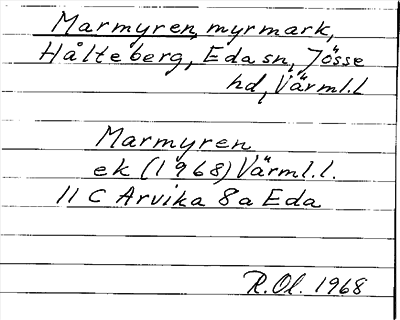 Marmyren, myrmark,
Hålteberg, Eda sn, Jösse
hd, Värml.l
Marmyren
ek (1968) Värml.l.
11 C Arvika 8a Eda
R.Ol. 1968